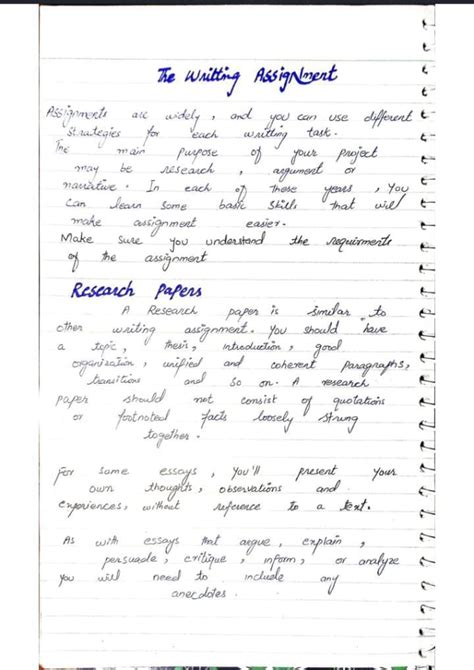 The Writting Assignment
Assignments are widely, and you can use different
strategies for each writting task.
The main purpose of your project
may be research, argument or
narrative. In each of these years, You
can learn some basic skills that will
make assignment easier.
Make sure you understand the requirments
of the assignment
Research Papers
A Research paper is similar to
other writing assignment. You should have
a topic, thesis, introduction, good
organization, unified and coherent Paragraphs,
transitions and so on. A research
paper should not consist of quotations
or footnoted facts loosely strung
together.
For some essays, You'll present Your
own thoughts, observations and
experiences, without reference to a text.
As with essays that argue, explain,
persuade, critique, inform, or analyze
you will need to include any
anecdotes.